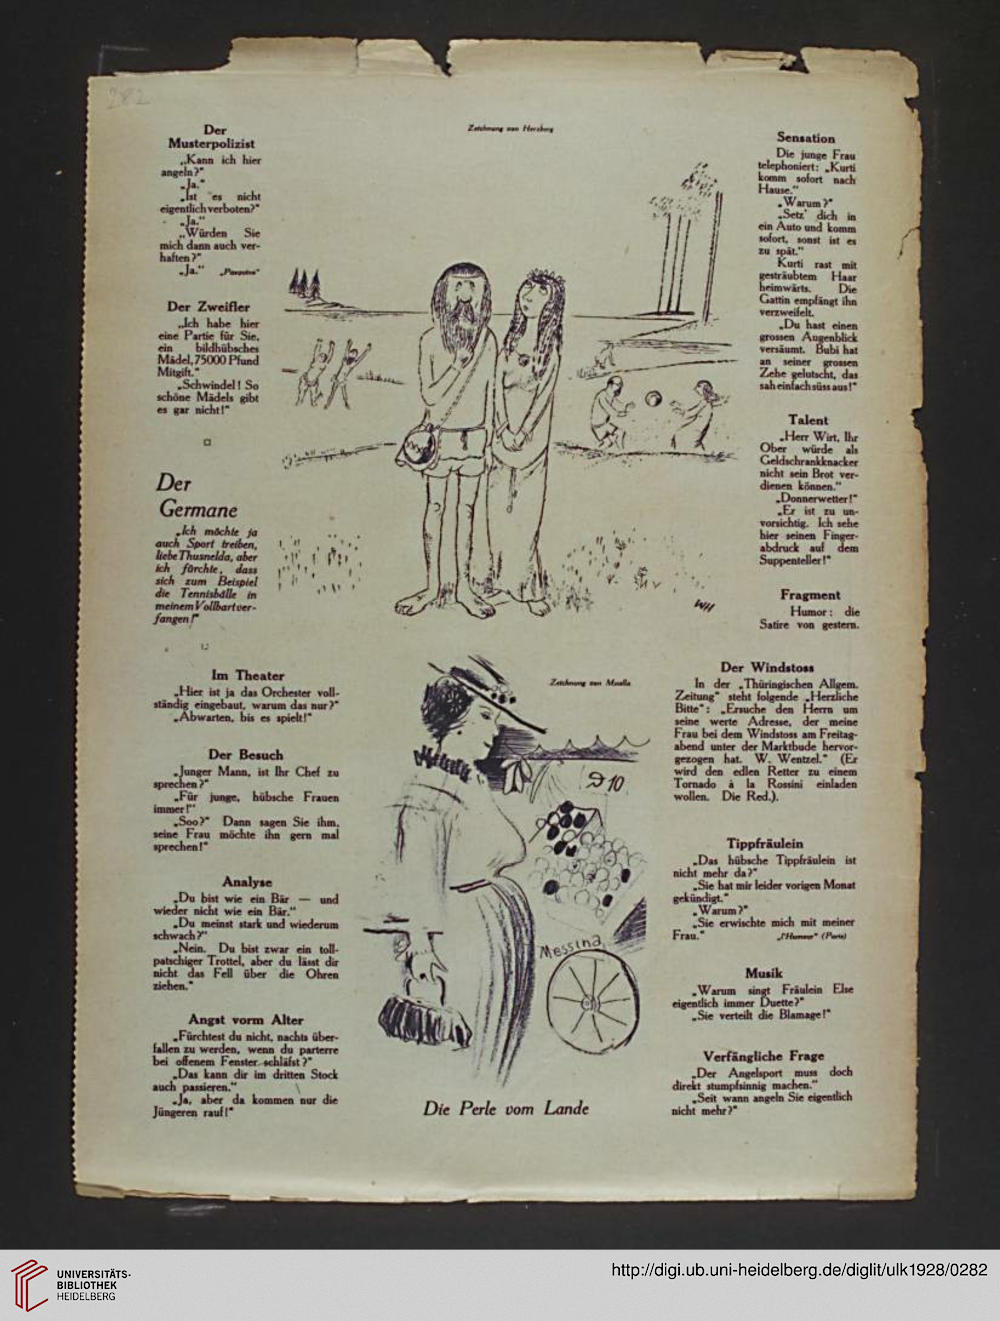 282
Zeichnung von Herzberg
Der
Musterpolizist
„Kann ich hier
angeln?"
„Ja."
„Ist es nicht
eigentlich verboten?"
„Ja."
„Würden Sie
mich dann auch ver-
haften?"
„Ja."
Der Zweifler
„Ich habe hier
eine Partie für Sie,
ein bildhübsches
Mädel, 75000 Pfund
Mitgift."
„Schwindel! So
schöne Mädels gibt
es gar nicht!"
Der
Germane
„Ich möchte ja
auch Sport treiben,
liebe Thusnelda, aber
ich fürchte, dass
sich zum Beispiel
die Tennisbälle in
meinem Vollbart ver-
fangen!"
WH
Sensation
Die junge Frau
telephoniert: „Kurti
komm sofort nach
Hause."
„Warum?"
„Setz' dich in
ein Auto und komm
sofort, sonst ist es
zu spät."
Kurti rast mit
gesträubtem Haar
heimwärts. Die
Gattin empfängt ihn
verzweifelt.
„Du hast einen
grossen Augenblick
versäumt. Bubi hat
an seiner grossen
Zehe gelutscht, das
sah einfach süss aus!"
Talent
„Herr Wirt, Ihr
Ober würde als
Geldschrankknacker
nicht sein Brot ver-
dienen können."
„Donnerwetter!"
„Er ist zu un-
vorsichtig. Ich sehe
hier seinen Finger-
abdruck auf dem
Suppenteller!"
Fragment
Humor: die
Satire von gestern.
Im Theater
„Hier ist ja das Orchester voll-
ständig eingebaut, warum das nur?"
„Abwarten, bis es spielt!"
Der Besuch
„Junger Mann, ist Ihr Chef zu
sprechen?"
„Für junge, hübsche Frauen
immer!"
„Soo?" Dann sagen Sie ihm,
seine Frau möchte ihn gern mal
sprechen!"
Analyse
„Du bist wie ein Bär — und
wieder nicht wie ein Bär."
„Du meinst stark und wiederum
schwach?"
„Nein. Du bist zwar ein toll-
patschiger Trottel, aber du lässt dir
nicht das Fell über die Ohren
ziehen."
Angst vorm Alter
„Fürchtest du nicht, nachts über-
fallen zu werden, wenn du parterre
bei offenem Fenster schläfst?"
„Das kann dir im dritten Stock
auch passieren."
„Ja, aber da kommen nur die
Jüngeren rauf!"
Zeichnung von
10
Messina
Die Perle vom Lande
Der Windstoss
In der „Thüringischen Allgem.
Zeitung" steht folgende „Herzliche
Bitte": „Ersuche den Herrn um
seine werte Adresse, der meine
Frau bei dem Windstoss am Freitag-
abend unter der Marktbude hervor-
gezogen hat. W. Wentzel." (Er
wird den edlen Retter zu einem
Tornado à la Rossini einladen
wollen. Die Red.).
Tippfräulein
„Das hübsche Tippfräulein ist
nicht mehr da?"
„Sie hat mir leider vorigen Monat
gekündigt."
„Warum?"
„Sie erwischte mich mit meiner
Frau." „l'Humour" (Paris)
Musik
„Warum singt Fräulein Else
eigentlich immer Duette?"
„Sie verteilt die Blamage!"
Verfängliche Frage
„Der Angelsport muss doch
direkt stumpfsinnig machen."
„Seit wann angeln Sie eigentlich
nicht mehr?"
UNIVERSITÄTS-
BIBLIOTHEK
HEIDELBERG
http://digi.ub.uni-heidelberg.de/diglit/ulk1928/0282